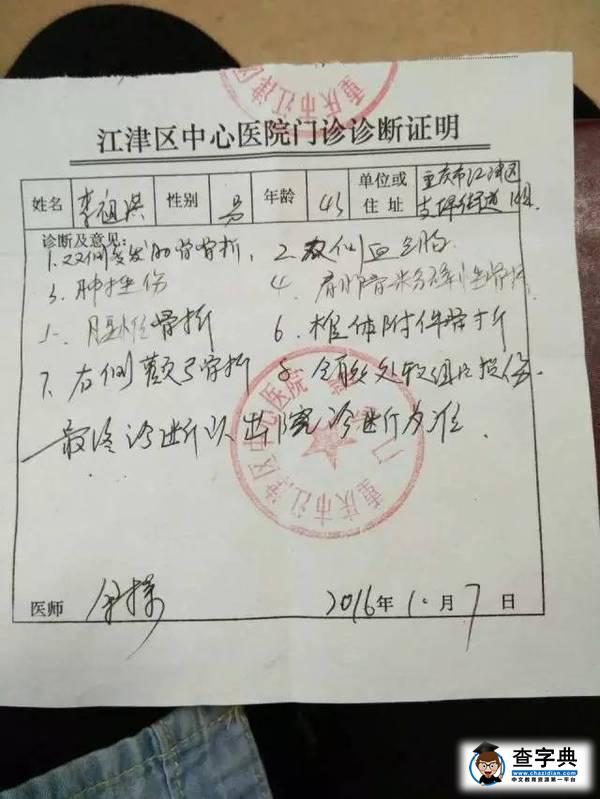 重庆市江津区
江津区中心医院门诊诊断证明
姓名 李祖洪 性别 男 年龄 45 单位或住址 重庆市江津区支坪街道
诊断及意见:
1. 双侧多发肋骨骨折, 2. 双侧血气胸
3. 肺挫伤 4. 肩胛骨粉碎性骨折
5. 腰椎骨折 6. 椎体附件骨折
7. 右侧颧弓骨折 8. 全身多处软组织损伤.
最终诊断以出院诊断为准.
重庆市江津区中心医院
医师 2016年10月7日
查字典
www.chazidian.com
中文教育资源第一平台